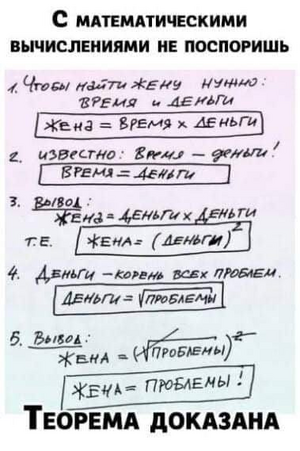 С МАТЕМАТИЧЕСКИМИ
ВЫЧИСЛЕНИЯМИ НЕ ПОСПОРИШЬ
1. Чтобы найти жену нужно:
время и деньги
Жена = время х деньги
2. известно: Время – деньги!
Время = деньги
3. Вывод:
Жена = деньги х деньги
т.е. Жена = (деньги)²
4. Деньги – корень всех проблем.
Деньги = √проблемы
5. Вывод:
Жена = (√проблемы)²
Жена = проблемы!
ТЕОРЕМА ДОКАЗАНА